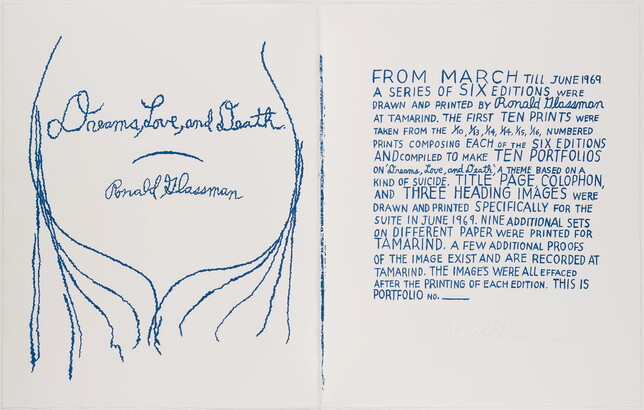 Dreams, Love, and Death.
Ronald Glassman
FROM MARCH TILL JUNE 1969
A SERIES OF SIX EDITIONS WERE
DRAWN AND PRINTED BY Ronald Glassman
AT TAMARIND. THE FIRST TEN PRINTS WERE
TAKEN FROM THE NUMBERED
PRINTS COMPOSING EACH OF THE SIX EDITIONS
AND COMPILED TO MAKE TEN PORTFOLIOS
ON "Dreams, Love, and Death," A THEME BASED ON A
KIND OF SUICIDE. TITLE PAGE, COLOPHON,
AND THREE HEADING IMAGES WERE
DRAWN AND PRINTED SPECIFICALLY FOR THE
SUITE IN JUNE 1969. NINE ADDITIONAL SETS
ON DIFFERENT PAPER WERE PRINTED FOR
TAMARIND. A FEW ADDITIONAL PROOFS
OF THE IMAGE EXIST AND ARE RECORDED AT
TAMARIND. THE IMAGE'S WERE ALL EFFACED
AFTER THE PRINTING OF EACH EDITION. THIS IS
PORTFOLIO NO. ____